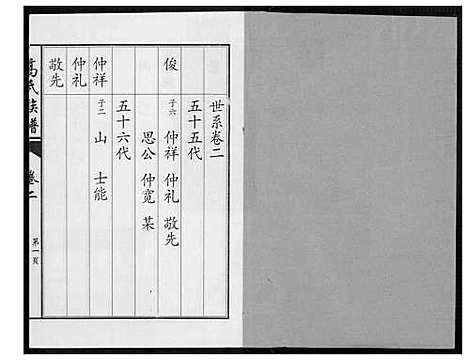 世系卷二
五十五代
俊 子六 仲祥 仲礼 敬先
思公 仲宽 某
五十六代
仲祥 子二 山 士能
仲礼
敬先
氏族谱 卷二 第一页